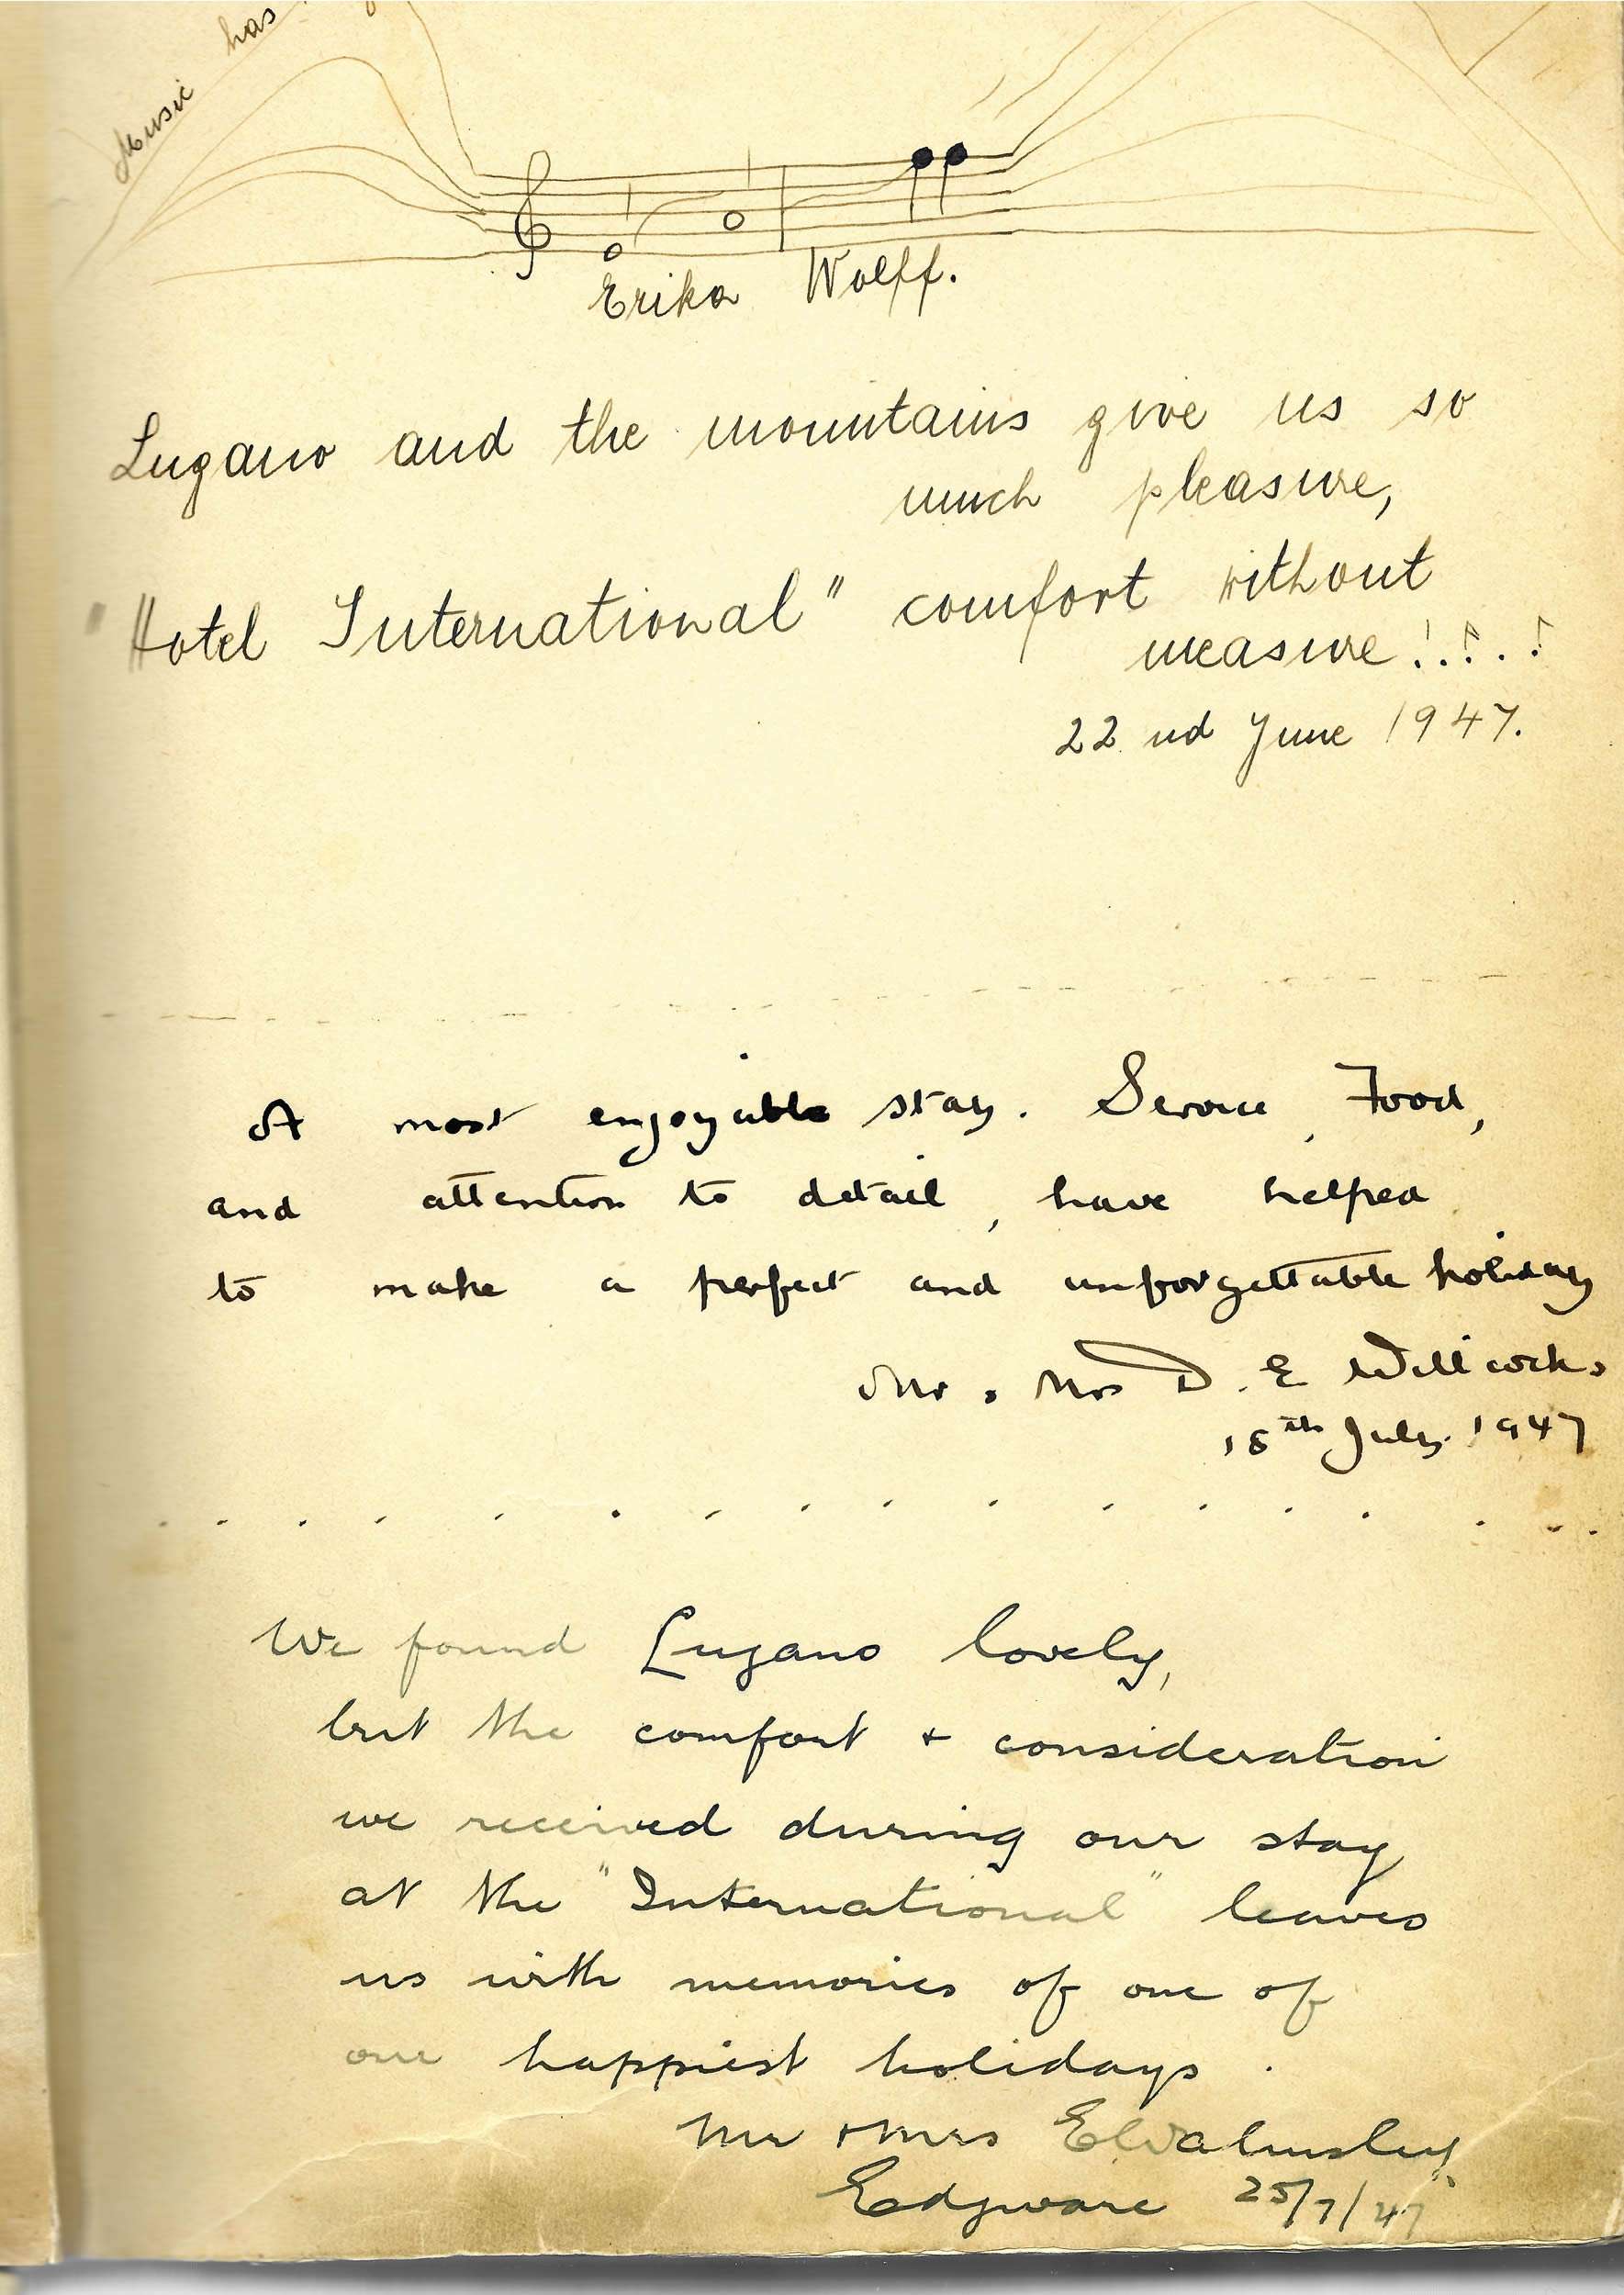 Music has
Erika Wolff.
Lugano and the mountains give us so
much pleasure,
"Hotel International" comfort without
measure!.!.!
22nd June 1947.
A most enjoyable stay. Service, Food,
and attention to detail, have helped
to make a perfect and unforgettable holiday
Mr. Mrs D. E Willcocks
18th July. 1947
We found Lugano lovely,
but the comfort + consideration
we received during our stay
at the "International" leaves
us with memories of one of
our happiest holidays.
Mr + Mrs E Walmsley
Edgware 25/7/47